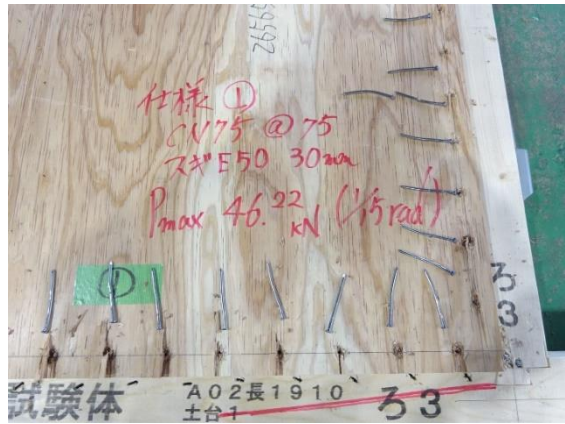 26565
仕様 ①
CN75 @ 75
スギE50 30mm
Pmax 46.22 kN (1/15 rad)
①
ろ
3
試験体
A02長1910
土台1
ろ3